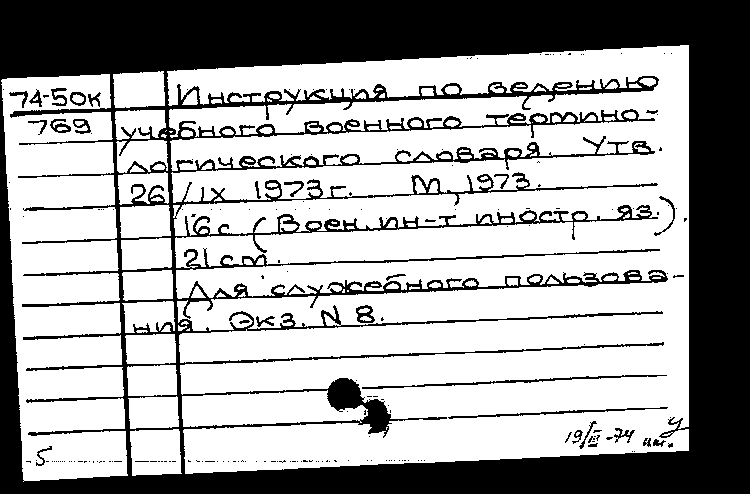 74-50к Инструкция по ведению
769 учебного военного термино-
логического словаря. Утв.
26/IX 1973г. М., 1973.
16с (Воен. ин-т иностр. яз.).
21см.
Для служебного пользова-
ния. Экз. N 8.
19/III-74
5